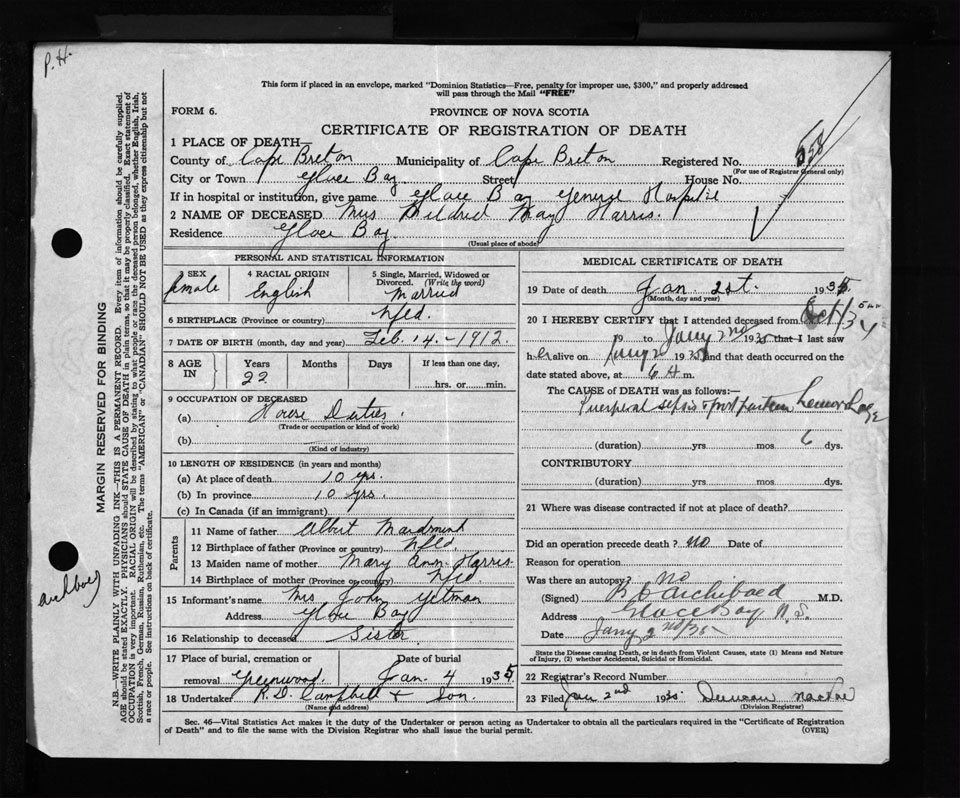 P.H.
This form if placed in an envelope, marked "Dominion Statistics—Free, penalty for improper use, $300," and properly addressed
will pass through the Mail "FREE"
FORM 6.
PROVINCE OF NOVA SCOTIA
CERTIFICATE OF REGISTRATION OF DEATH
1 PLACE OF DEATH—
County of Cape Breton Municipality of Cape Breton Registered No. 558
(For use of Registrar General only)
City or Town Glace Bay Street House No.
If in hospital or institution, give name Glace Bay General Hospital
2 NAME OF DECEASED Mrs Mildred May Harris.
Residence Glace Bay.
(Usual place of abode)
PERSONAL AND STATISTICAL INFORMATION
3 SEX female
4 RACIAL ORIGIN English
5 Single, Married, Widowed or Divorced. (Write the word) Married
6 BIRTHPLACE (Province or country) Nfld.
7 DATE OF BIRTH (month, day and year) Feb. 14.-1912.
8 AGE IN Years 22 Months Days If less than one day,
hrs. or min.
9 OCCUPATION OF DECEASED
(a) House Duties.
(Trade or occupation or kind of work)
(b)
(Kind of industry)
10 LENGTH OF RESIDENCE (in years and months)
(a) At place of death 10 yrs.
(b) In province 10 yrs.
(c) In Canada (if an immigrant)
Parents
11 Name of father Albert
12 Birthplace of father (Province or country) Nfld.
13 Maiden name of mother Mary Ann Harris.
14 Birthplace of mother (Province or country) Nfld
15 Informant's name Mrs John Yetman
Address Glace Bay
16 Relationship to deceased Sister
17 Place of burial, cremation or Date of burial
removal Greenwood. Jan. 4 1935
18 Undertaker R. D. Campbell + Son.
(Name and address)
MEDICAL CERTIFICATE OF DEATH
19 Date of death Jan. 2st. 1935.
(Month, day and year)
20 I HEREBY CERTIFY that I attended deceased from Oct/34
19 to Jany 2nd 1935 that I last saw
her alive on Jany 2 1935 and that death occurred on the
date stated above, at 6 A m.
The CAUSE of DEATH was as follows:—
Puerperal sepsis + post partum hemorrhage
(duration) yrs mos 6 dys.
CONTRIBUTORY
(duration) yrs. mos. dys.
21 Where was disease contracted if not at place of death?
Did an operation precede death? No Date of
Reason for operation
Was there an autopsy? no
(Signed) Archibald M.D.
Address Glace Bay N.S.
Date Jany 2nd/35
State the Disease causing Death, or in death from Violent Causes, state (1) Means and Nature
of Injury, (2) whether Accidental, Suicidal or Homicidal.
22 Registrar's Record Number
23 Filed Jan 2nd 1935 Duncan MacRae
(Division Registrar)
Sec. 46—Vital Statistics Act makes it the duty of the Undertaker or person acting as Undertaker to obtain all the particulars required in the "Certificate of Registration
of Death" and to file the same with the Division Registrar who shall issue the burial permit. (OVER)
MARGIN RESERVED FOR BINDING
N.B.—WRITE PLAINLY WITH UNFADING INK—THIS IS A PERMANENT RECORD. Every item of information should be carefully supplied.
AGE should be stated EXACTLY. PHYSICIANS should STATE CAUSE OF DEATH in plain terms, so that it may be properly classified. Exact statement of
OCCUPATION is very important. RACIAL ORIGIN will be described by stating to what people or race the deceased person belonged, whether English, Irish,
Scottish, French, German, Russian, Ruthenian, etc. The terms "AMERICAN" or "CANADIAN" SHOULD NOT BE USED as they express citizenship but not
a race or people. See instructions on back of certificate.